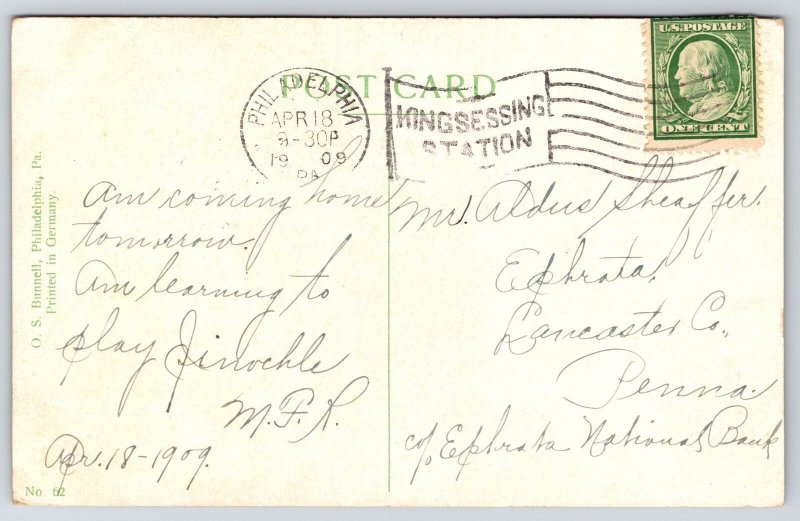 POST CARD
U.S.POSTAGE
ONE CENT
PHILADELPHIA
APR 18
9-30P
19 09
PA
KINGSESSING
STATION
am coming home
tomorrow.
am learning to
play Pinochle
M.F.R.
Apr. 18-1909.
Mr. Aldus Sheaffer.
Ephrata,
Lancaster Co.,
Penna.
c/o Ephrata National Bank
O. S. Bunnell, Philadelphia, Pa.
Printed in Germany
No. 62